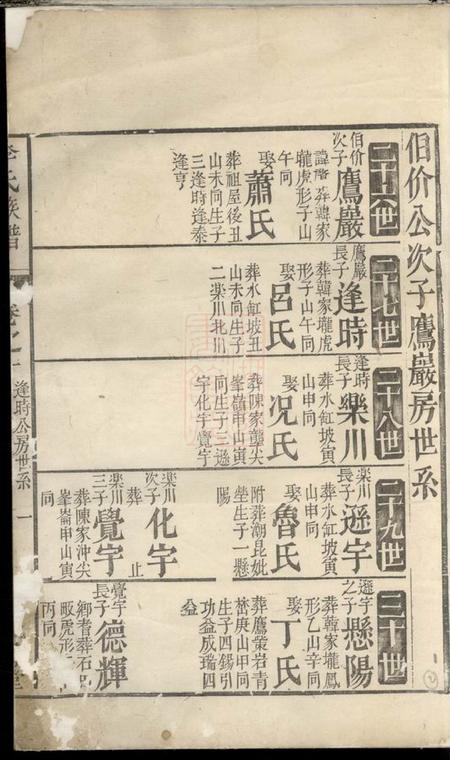 伯价公次子鷹巖房世系
二十六世
伯价次子
鷹巖
諱 葬韓家
壠虎形子山
午同
娶
蕭氏
葬祖屋後丑
山未同生子
三逢時逢泰
逢亨
二十七世
鷹巖長子
逢時
葬韓家壠虎
形子山午同
娶
呂氏
葬水缸坡丑
山未同生子
二楽川北川
二十八世
逢時長子
楽川
葬水缸坡寅
山申同
娶
况氏
葬陳家壟尖
峯崙申山寅
同生子三遜
宇化宇覺宇
二十九世
楽川長子
遜宇
葬水缸坡寅
山申同
娶
魯氏
附葬潮昆妣
塋生子一懸
陽
楽川次子
化宇
葬 止
楽川三子
覺宇
葬陳家沖尖
峯崙申山寅
同
三十世
遜宇之子
懸陽
葬韓家壠鳳
形乙山辛同
娶
丁氏
葬鷹巖岩青
嵩庚山甲同
生子四錫引
功益成瑞四
益
覺宇長子
德輝
鄉耆葬石
畈虎形
丙同
氏族譜
卷之一
逢時公房世系
一